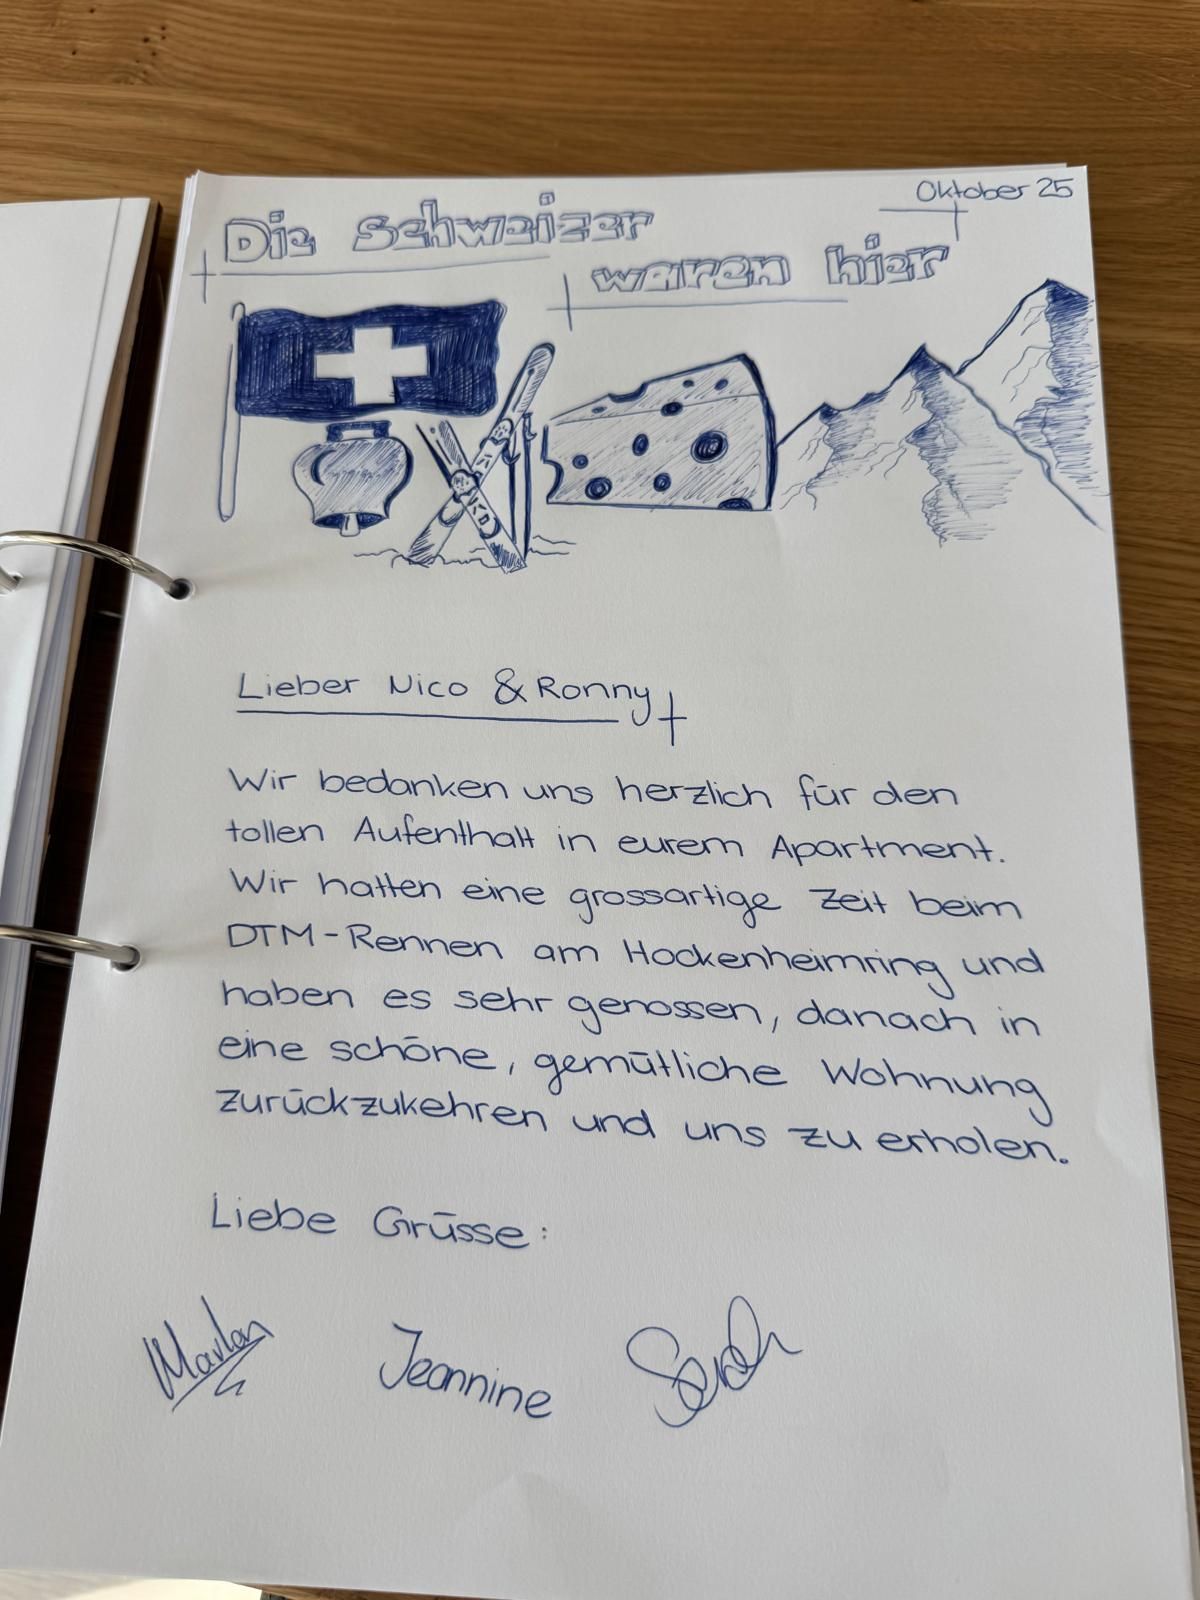 Oktober 25
Die Schweizer
waren hier
Lieber Nico & Ronny
Wir bedanken uns herzlich für den
tollen Aufenthalt in eurem Apartment.
Wir hatten eine grossartige Zeit beim
DTM-Rennen am Hockenheimring und
haben es sehr genossen, danach in
eine schöne, gemütliche Wohnung
zurückzukehren und uns zu erholen.
Liebe Grüsse:
Marlon Jeannine Sarah